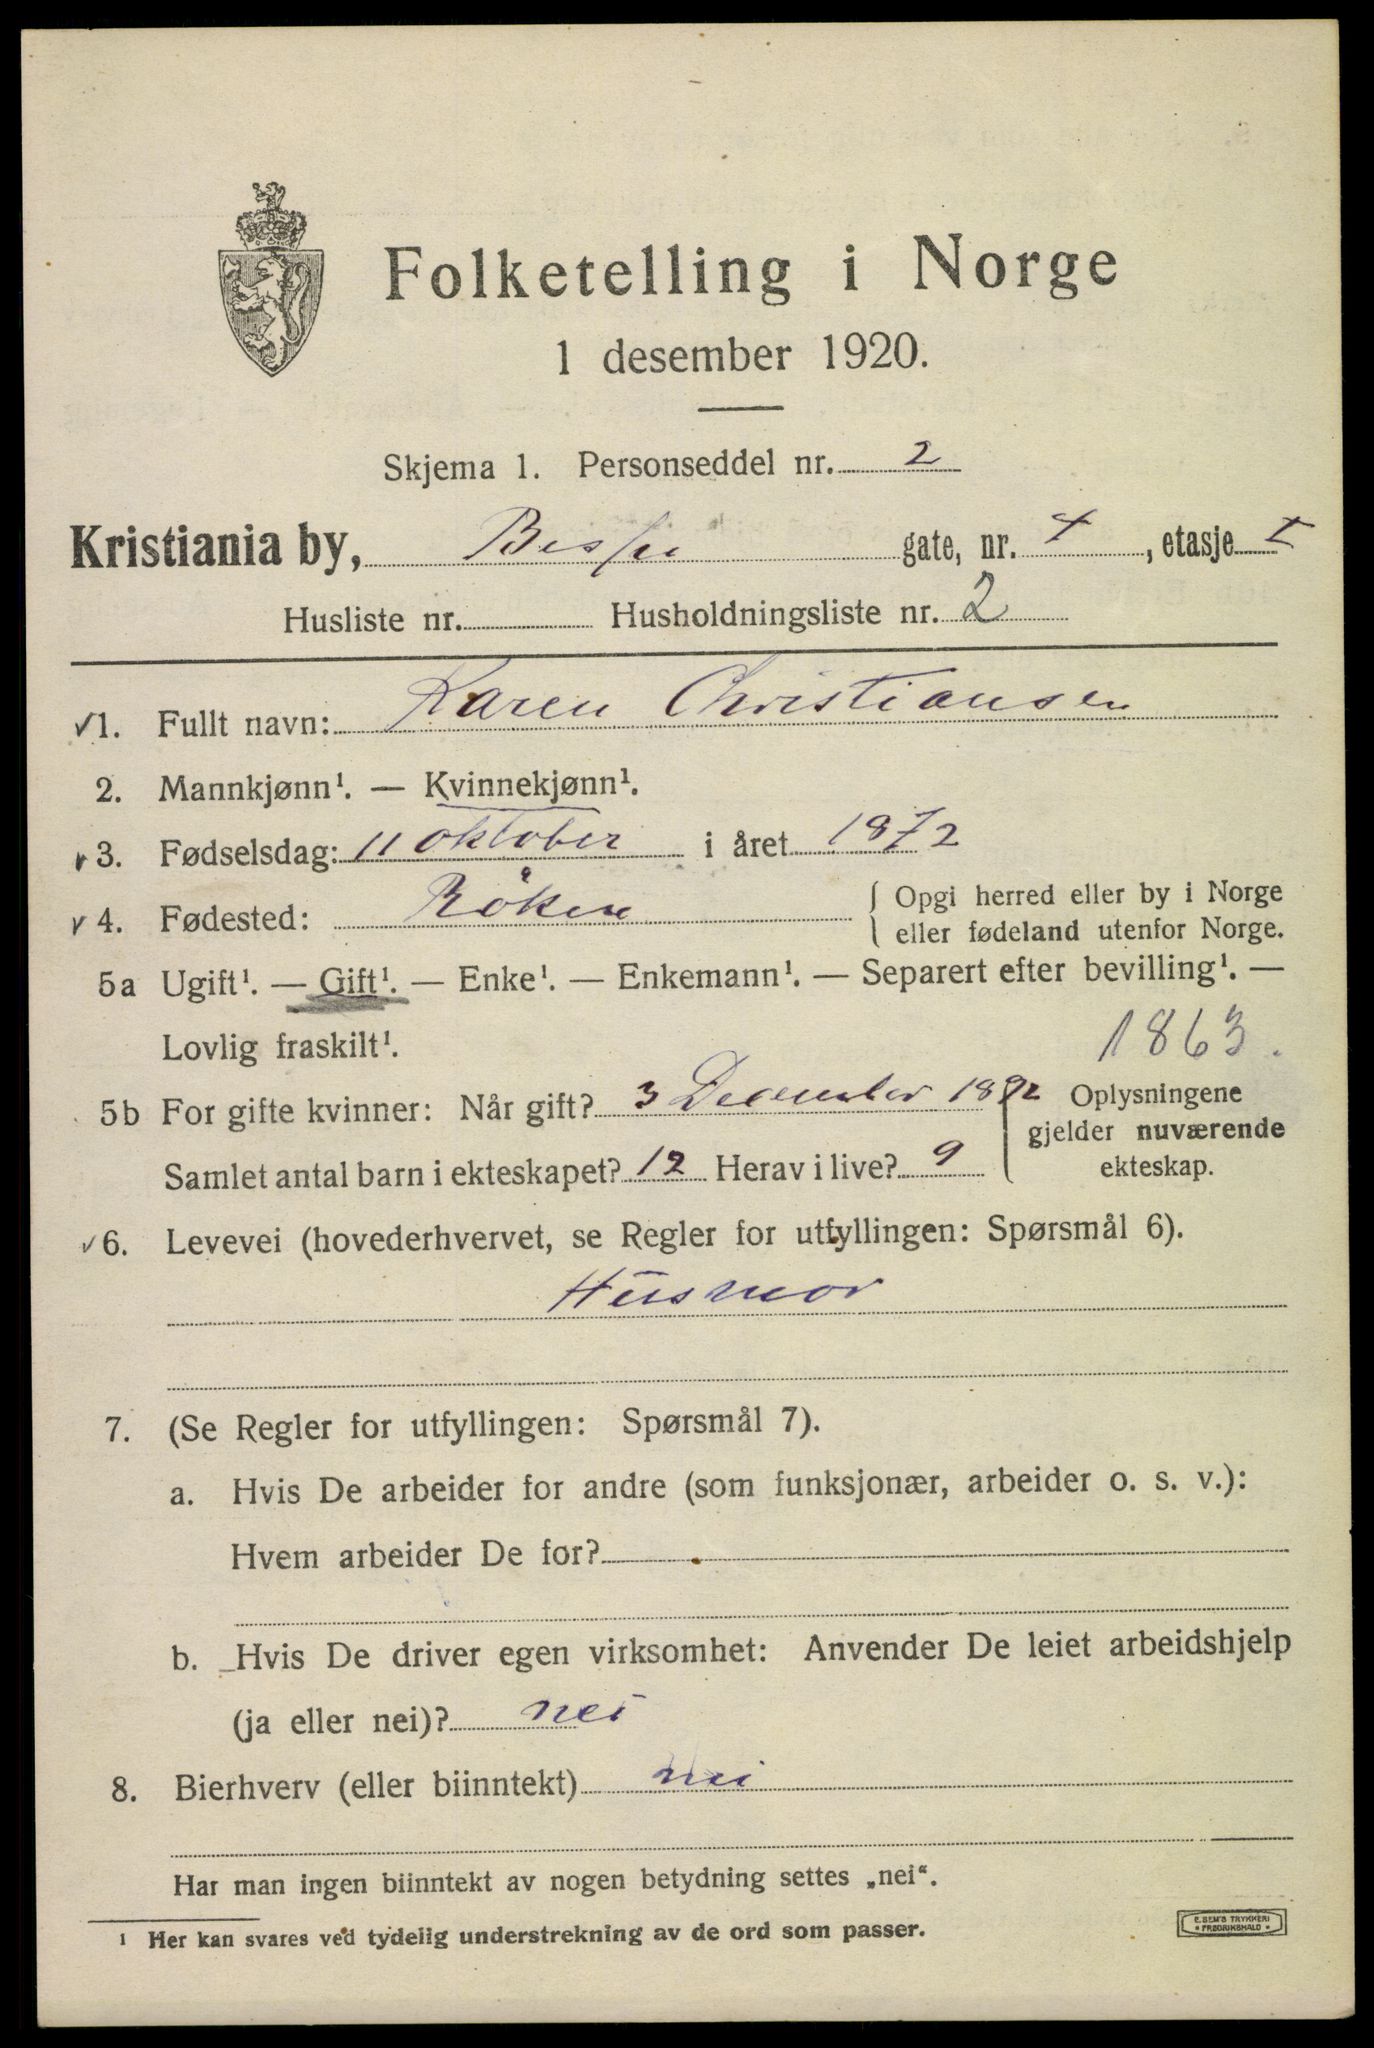 Folketelling i Norge
1 desember 1920.
Skjema 1. Personseddel nr. 2
Kristiania by, gate, nr. 4, etasje I
Husliste nr. Husholdningsliste nr. 2
✓1. Fullt navn: Karen Christiansen
2. Mannkjønn¹. — Kvinnekjønn¹.
✓3. Fødselsdag: 11 oktober i året 1872
✓4. Fødested: Röken { Opgi herred eller by i Norge
eller fødeland utenfor Norge.
5a Ugift¹. — Gift¹. — Enke¹. — Enkemann¹. — Separert efter bevilling¹. —
Lovlig fraskilt¹. 1863.
5b For gifte kvinner: Når gift? 3 December 1892
Samlet antal barn i ekteskapet? 12 Herav i live? 9
{ Oplysningene
gjelder nuværende
ekteskap.
✓6. Levevei (hovederhvervet, se Regler for utfyllingen: Spørsmål 6).
Husmor
7. (Se Regler for utfyllingen: Spørsmål 7).
a. Hvis De arbeider for andre (som funksjonær, arbeider o. s. v.):
Hvem arbeider De for?
b. Hvis De driver egen virksomhet: Anvender De leiet arbeidshjelp
(ja eller nei)? nei
8. Bierhverv (eller biinntekt) nei
Har man ingen biinntekt av nogen betydning settes „nei“.
¹ Her kan svares ved tydelig understrekning av de ord som passer.
E. SEM'S TRYKKERI
* FREDRIKSHALD *